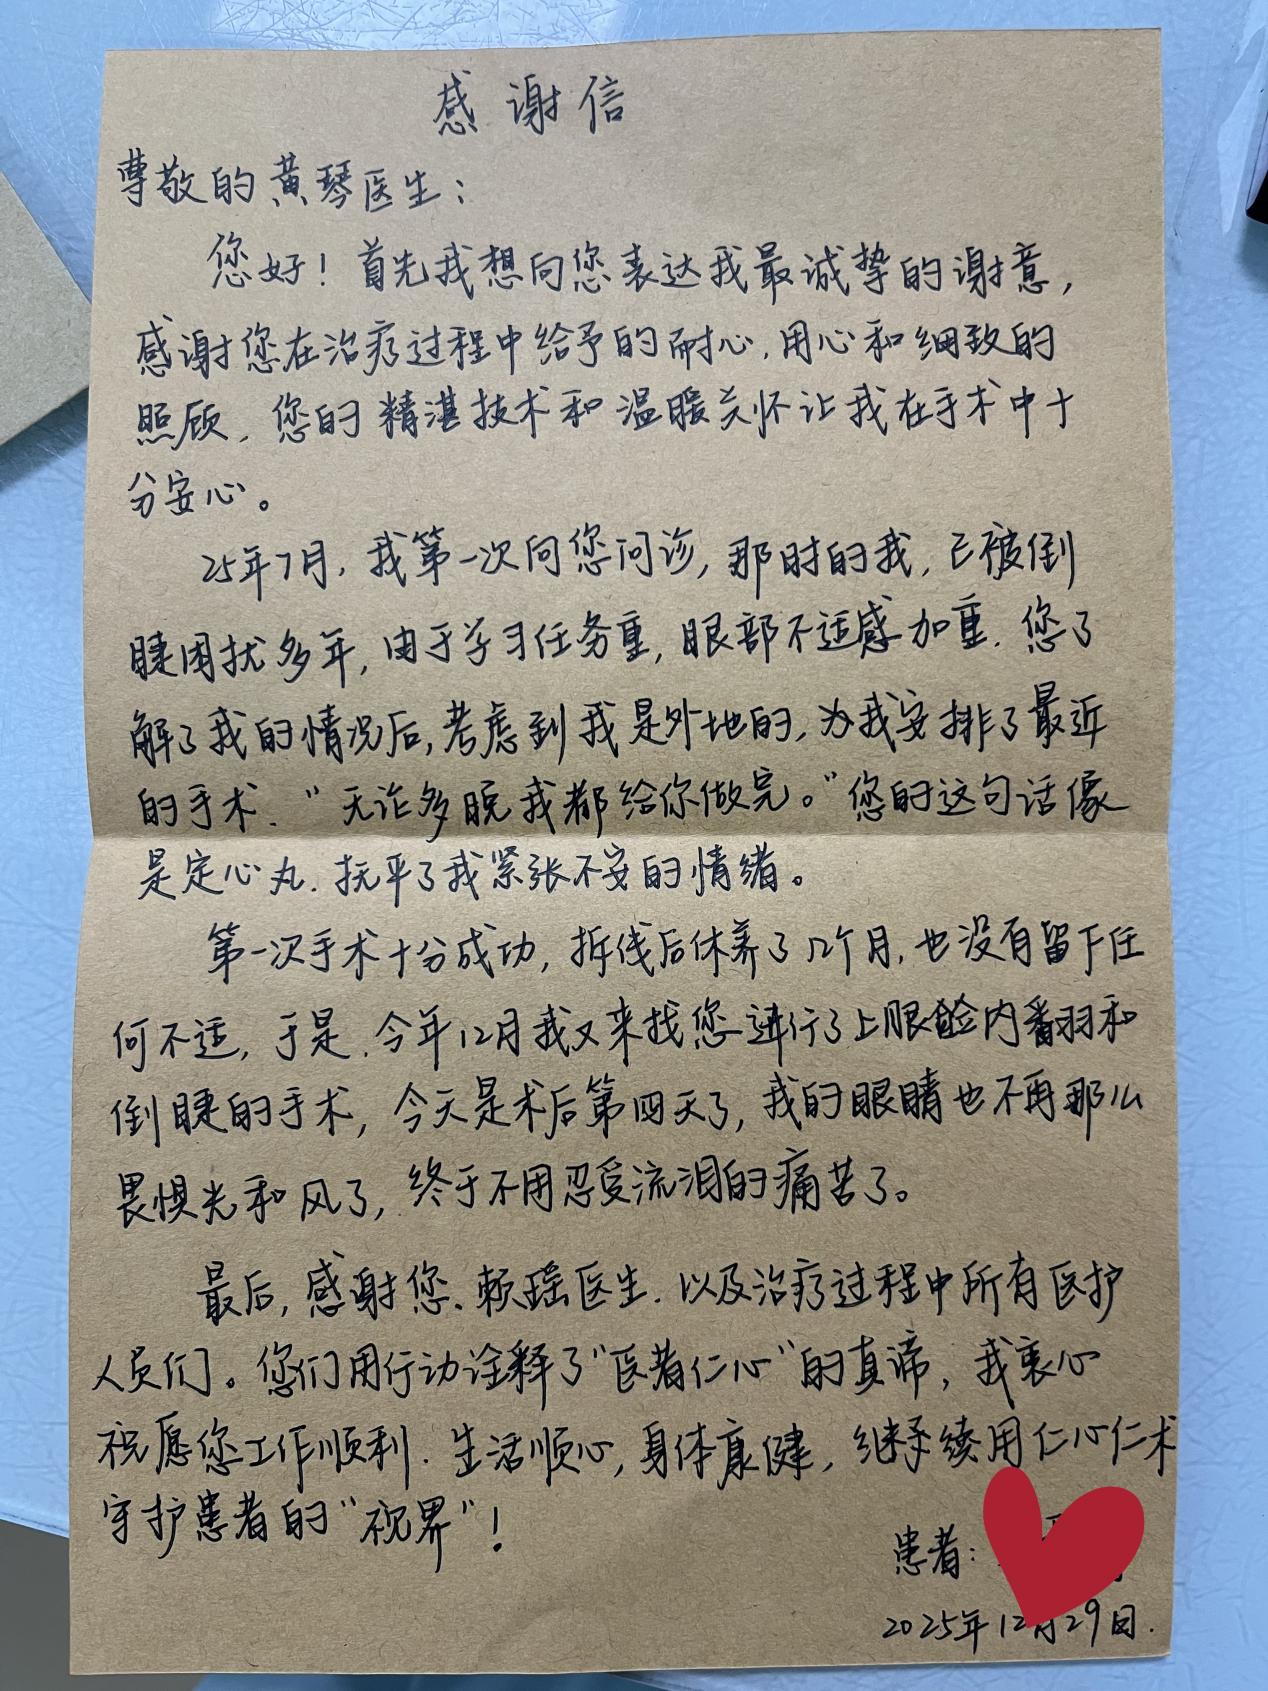 感谢信
尊敬的黄琴医生：
您好！首先我想向您表达我最诚挚的谢意，
感谢您在治疗过程中给予的耐心、用心和细致的
照顾，您的精湛技术和温暖关怀让我在手术中十
分安心。
25年7月，我第一次向您问诊，那时的我，已被倒
睫困扰多年，由于学习任务重，眼部不适感加重，您了
解了我的情况后，考虑到我是外地的，为我安排了最近
的手术，“无论多晚我都给你做完。”您的这句话像
是定心丸，抚平了我紧张不安的情绪。
第一次手术十分成功，拆线后休养了几个月，也没有留下任
何不适，于是，今年12月我又来找您进行了上眼睑内翻和
倒睫的手术，今天是术后第四天了，我的眼睛也不再那么
畏惧光和风了，终于不用忍受流泪的痛苦了。
最后，感谢您、赖瑶医生，以及治疗过程中所有医护
人员们。您们用行动诠释了“医者仁心”的真谛，我衷心
祝愿您工作顺利，生活顺心，身体康健，继续用仁心仁术
守护患者的“视界”！
患者：
2025年12月29日.